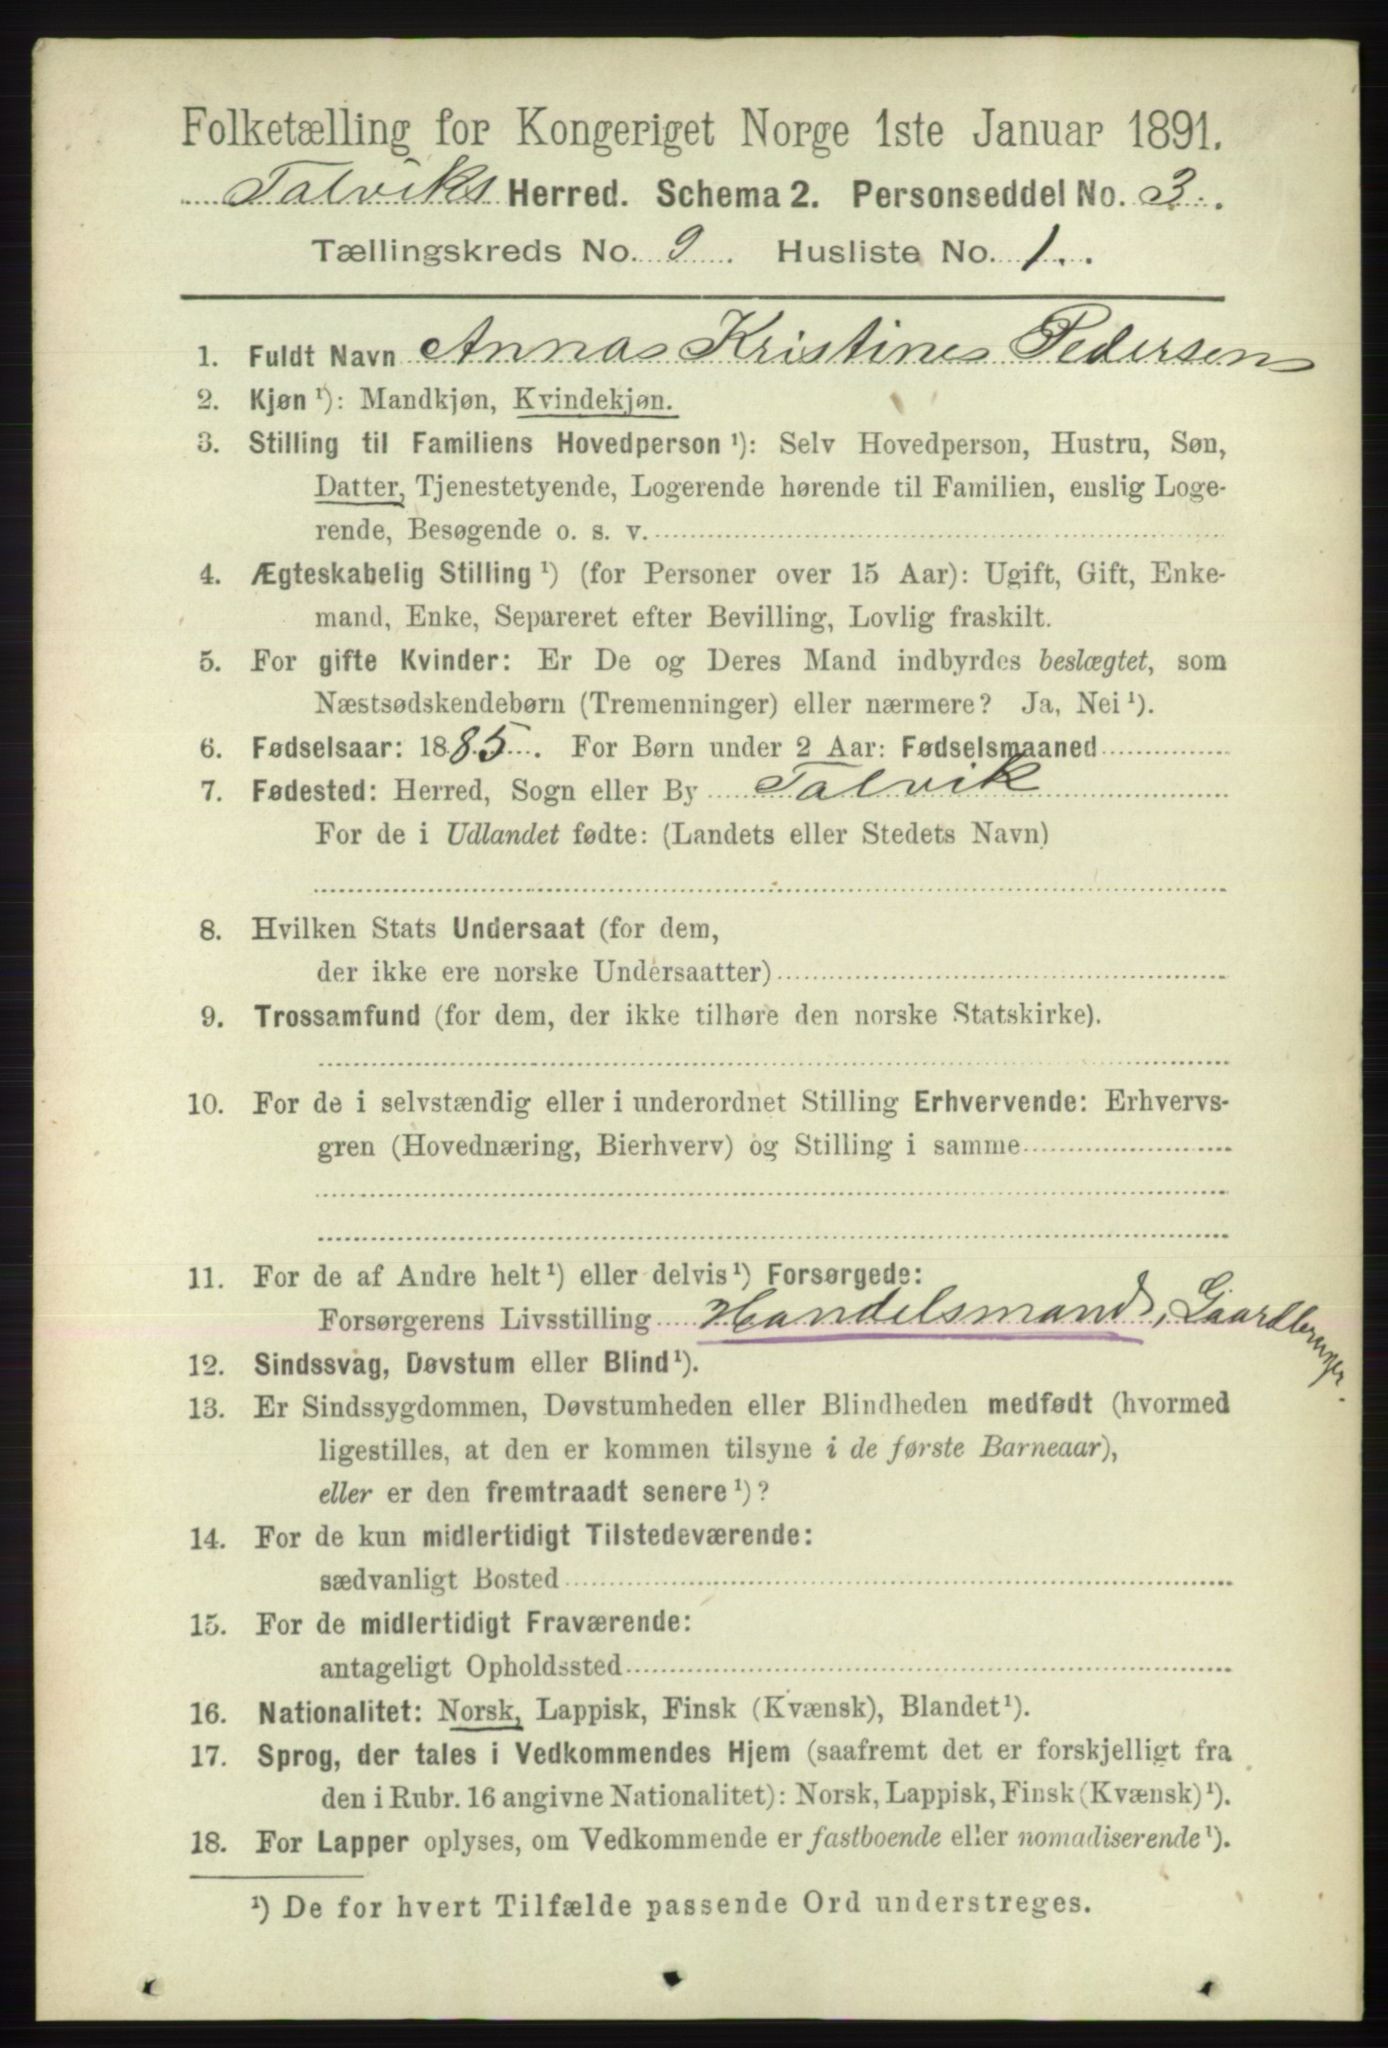 Folketælling for Kongeriget Norge 1ste Januar 1891.
Talviks Herred. Schema 2. Personseddel No. 3.
Tællingskreds No. 9. Husliste No. 1.
1. Fuldt Navn Anna Kristine Pedersen
2. Kjøn ¹): Mandkjøn, Kvindekjøn.
3. Stilling til Familiens Hovedperson ¹): Selv Hovedperson, Hustru, Søn,
Datter, Tjenestetyende, Logerende hørende til Familien, enslig Loge-
rende, Besøgende o. s. v.
4. Ægteskabelig Stilling ¹) (for Personer over 15 Aar): Ugift, Gift, Enke-
mand, Enke, Separeret efter Bevilling, Lovlig fraskilt.
5. For gifte Kvinder: Er De og Deres Mand indbyrdes beslægtet, som
Næstsødskendebørn (Tremenninger) eller nærmere? Ja, Nei ¹).
6. Fødselsaar: 1885. For Børn under 2 Aar: Fødselsmaaned
7. Fødested: Herred, Sogn eller By Talvik
For de i Udlandet fødte: (Landets eller Stedets Navn)
8. Hvilken Stats Undersaat (for dem,
der ikke ere norske Undersaatter)
9. Trossamfund (for dem, der ikke tilhøre den norske Statskirke).
10. For de i selvstændig eller i underordnet Stilling Erhvervende: Erhvervs-
gren (Hovednæring, Bierhverv) og Stilling i samme
11. For de af Andre helt ¹) eller delvis ¹) Forsørgede:
Forsørgerens Livsstilling Handelsmand, Gaardbruger.
12. Sindssvag, Døvstum eller Blind ¹).
13. Er Sindssygdommen, Døvstumheden eller Blindheden medfødt (hvormed
ligestilles, at den er kommen tilsyne i de første Barneaar),
eller er den fremtraadt senere ¹)?
14. For de kun midlertidigt Tilstedeværende:
sædvanligt Bosted
15. For de midlertidigt Fraværende:
antageligt Opholdssted
16. Nationalitet: Norsk, Lappisk, Finsk (Kvænsk), Blandet ¹).
17. Sprog, der tales i Vedkommendes Hjem (saafremt det er forskjelligt fra
den i Rubr. 16 angivne Nationalitet): Norsk, Lappisk, Finsk (Kvænsk) ¹).
18. For Lapper oplyses, om Vedkommende er fastboende eller nomadiserende ¹).
¹) De for hvert Tilfælde passende Ord understreges.